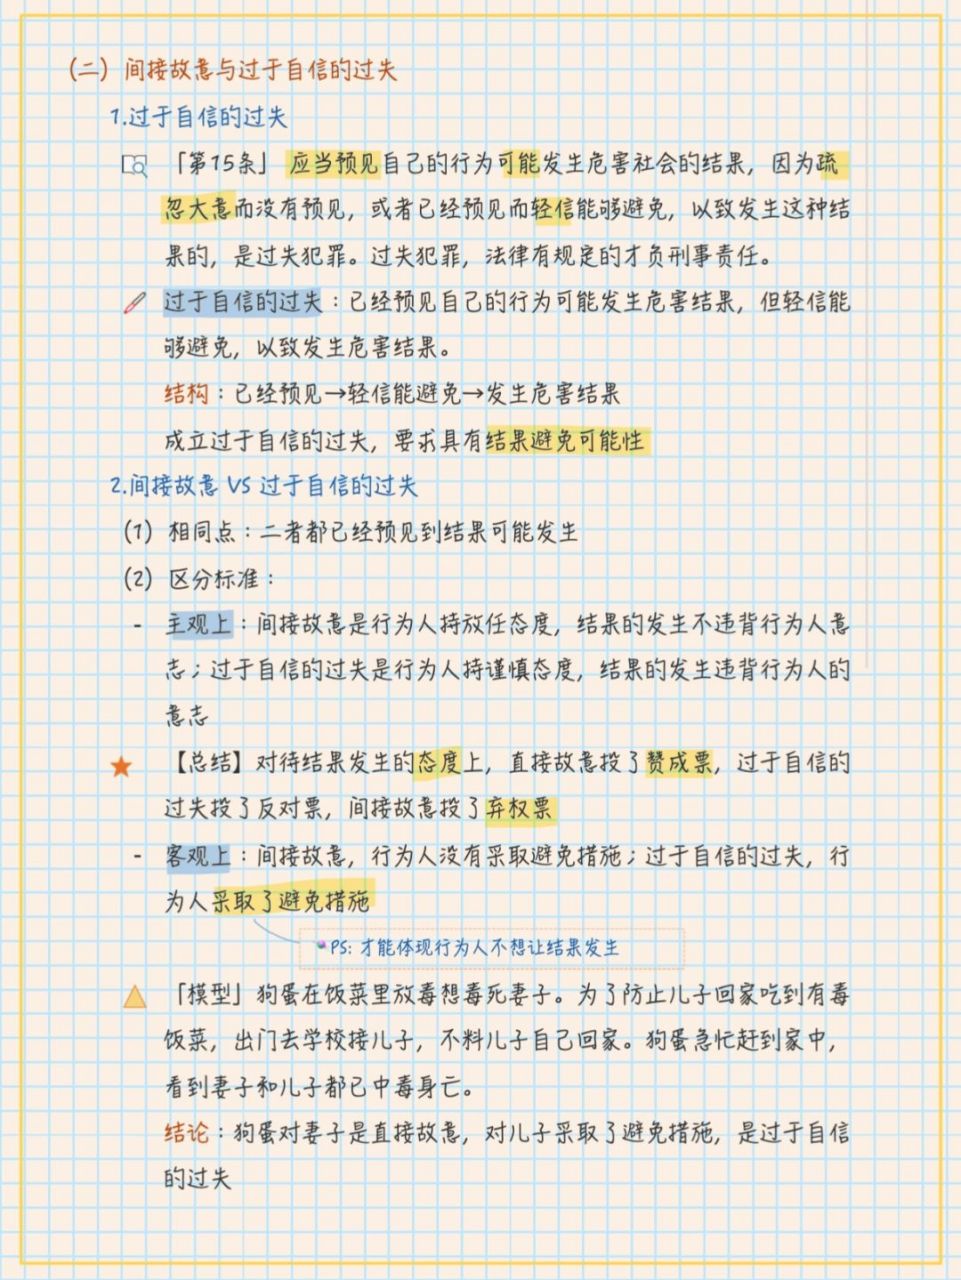 （二）间接故意与过于自信的过失
1.过于自信的过失
「第15条」应当预见自己的行为可能发生危害社会的结果，因为疏
忽大意而没有预见，或者已经预见而轻信能够避免，以致发生这种结
果的，是过失犯罪。过失犯罪，法律有规定的才负刑事责任。
过于自信的过失：已经预见自己的行为可能发生危害结果，但轻信能
够避免，以致发生危害结果。
结构：已经预见→轻信能避免→发生危害结果
成立过于自信的过失，要求具有结果避免可能性
2.间接故意 VS 过于自信的过失
（1）相同点：二者都已经预见到结果可能发生
（2）区分标准：
- 主观上：间接故意是行为人持放任态度，结果的发生不违背行为人意
志；过于自信的过失是行为人持谨慎态度，结果的发生违背行为人的
意志
【总结】对待结果发生的态度上，直接故意投了赞成票，过于自信的
过失投了反对票，间接故意投了弃权票
- 客观上：间接故意，行为人没有采取避免措施；过于自信的过失，行
为人采取了避免措施
PS: 才能体现行为人不想让结果发生
「模型」狗蛋在饭菜里放毒想毒死妻子。为了防止儿子回家吃到有毒
饭菜，出门去学校接儿子，不料儿子自己回家。狗蛋急忙赶到家中，
看到妻子和儿子都已中毒身亡。
结论：狗蛋对妻子是直接故意，对儿子采取了避免措施，是过于自信
的过失